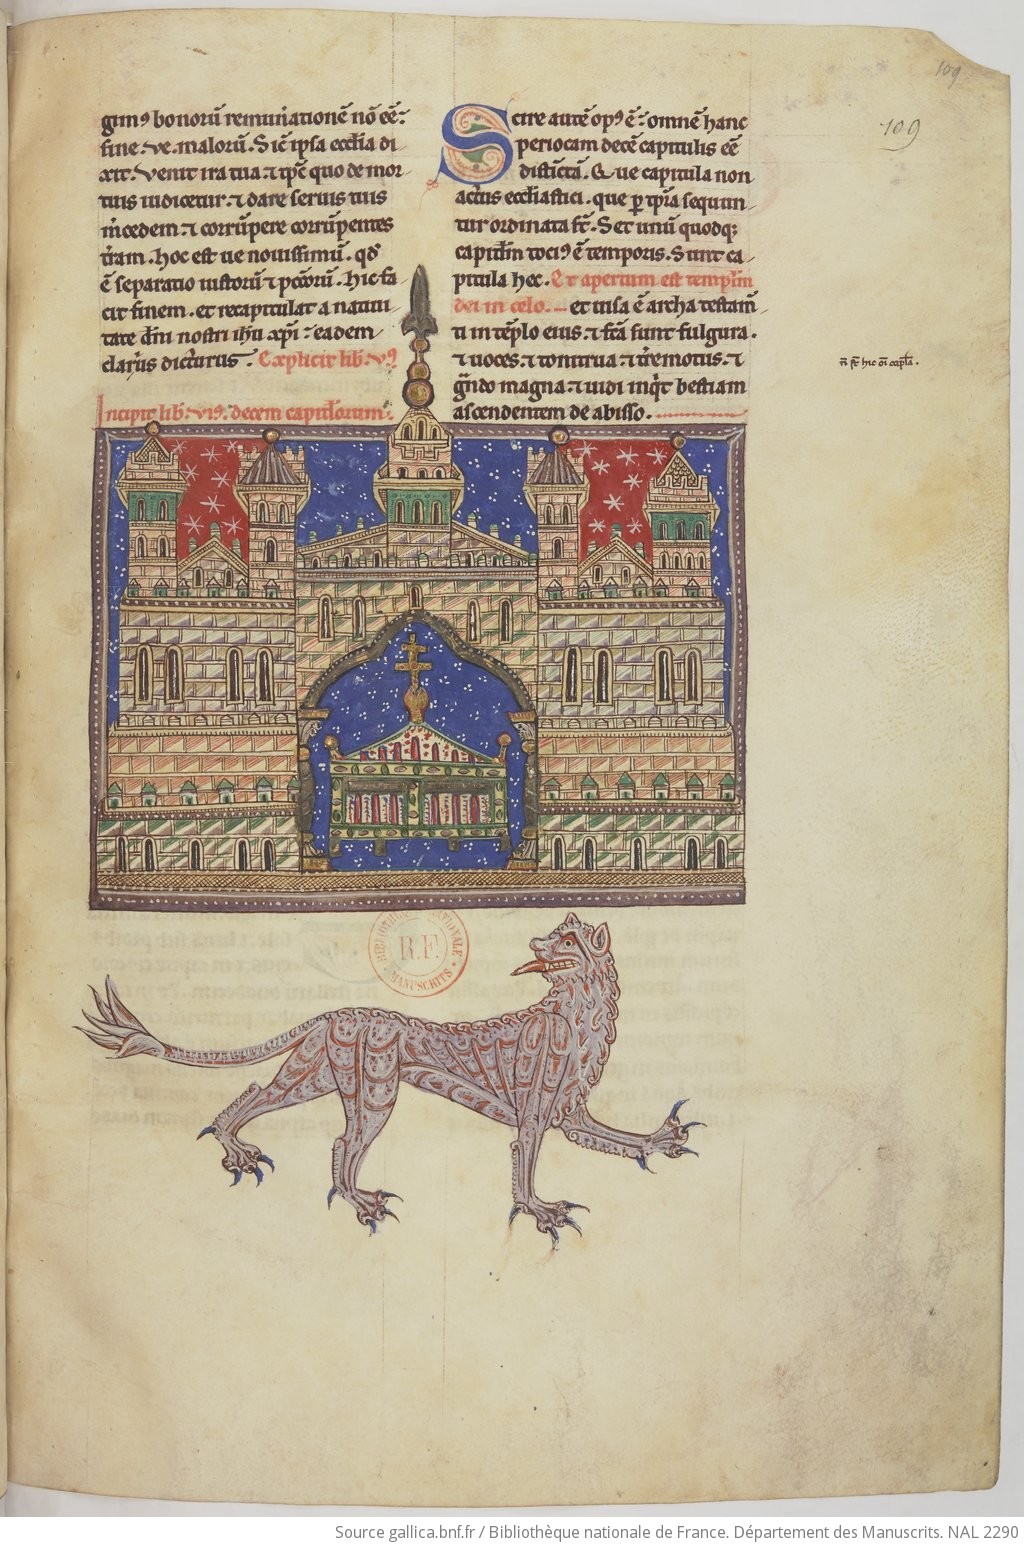 gun⁹ bonorū remunationē nō eē:
fine. ve. malorū. Sic̄ ipsa eccl̄ia di
xit. Venit ira tua ⁊ tp̄c quo de mor
tuis iudicetur. ⁊ dare seruis tuis
m̄cedem. ⁊ corrūpere corrūpentes
t̄ram. hoc est ue nouissimū. qd̄
ē separatio iustorū ⁊ pc̄orū. hic fa
cit finem. et recapitulat a natiui
tate dn̄i nostri ih̄u xp̄i: eadem
clarius dicturus. Explicit lib. v⁹
Incipit lib. vi⁹. decem capitulorum.
Scire autē op⁹ ē: omnē hanc
periocam decē capitulis eē
distictā. Que capitula non
actus eccl̄iastici. que p tp̄ra sequun
tur ordinata st̄. Set unū quodq;
capitl̄m toci⁹ ē temporis. Sunt ca
pitula hec. Et apertum est templ̄m
dei in celo. et uisa ē archa testam̄
ti in tēplo eius. ⁊ fc̄a sunt fulgura.
⁊ uoces. ⁊ tonitrua. ⁊ t̄remotus. ⁊
g̃ndo magna. ⁊ uidi inq̃t bestiam
ascendentem de abisso.
109
109
BIBLIOTHÈQUE NATIONALE
R.F.
MANUSCRITS
Source gallica.bnf.fr / Bibliothèque nationale de France. Département des Manuscrits. NAL 2290